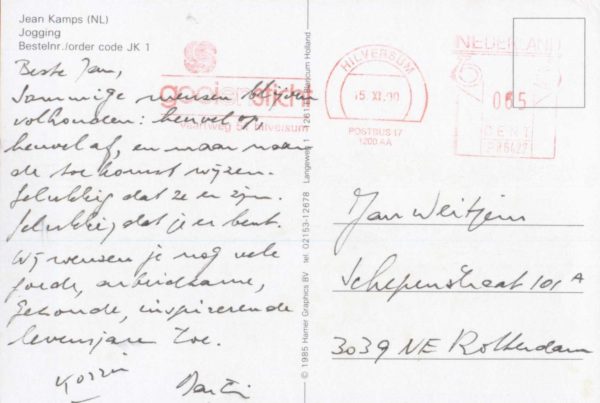 Jean Kamps (NL)
Jogging
Bestelnr./order code JK 1
Beste Jan,
Sommige mensen blijven
volhouden: heuvel op,
heuvel af, en maar naar
de toekomst wijzen.
Gelukkig dat ze er zijn.
Gelukkig dat je er bent.
Wij wensen je nog vele
goede, arbeidzame,
gezonde, inspirerende
levensjaren toe.
gooierssticht
Vaartweg 51 Hilversum
HILVERSUM
15.XI.90
POSTBUS 17
1200 AA
NEDERLAND
065
CENT
© 1985 Hamer Graphics BV tel. 02153-12678 Langeweg
Holland
Jan
Schepenstraat 101 A
3039 NE Rotterdam